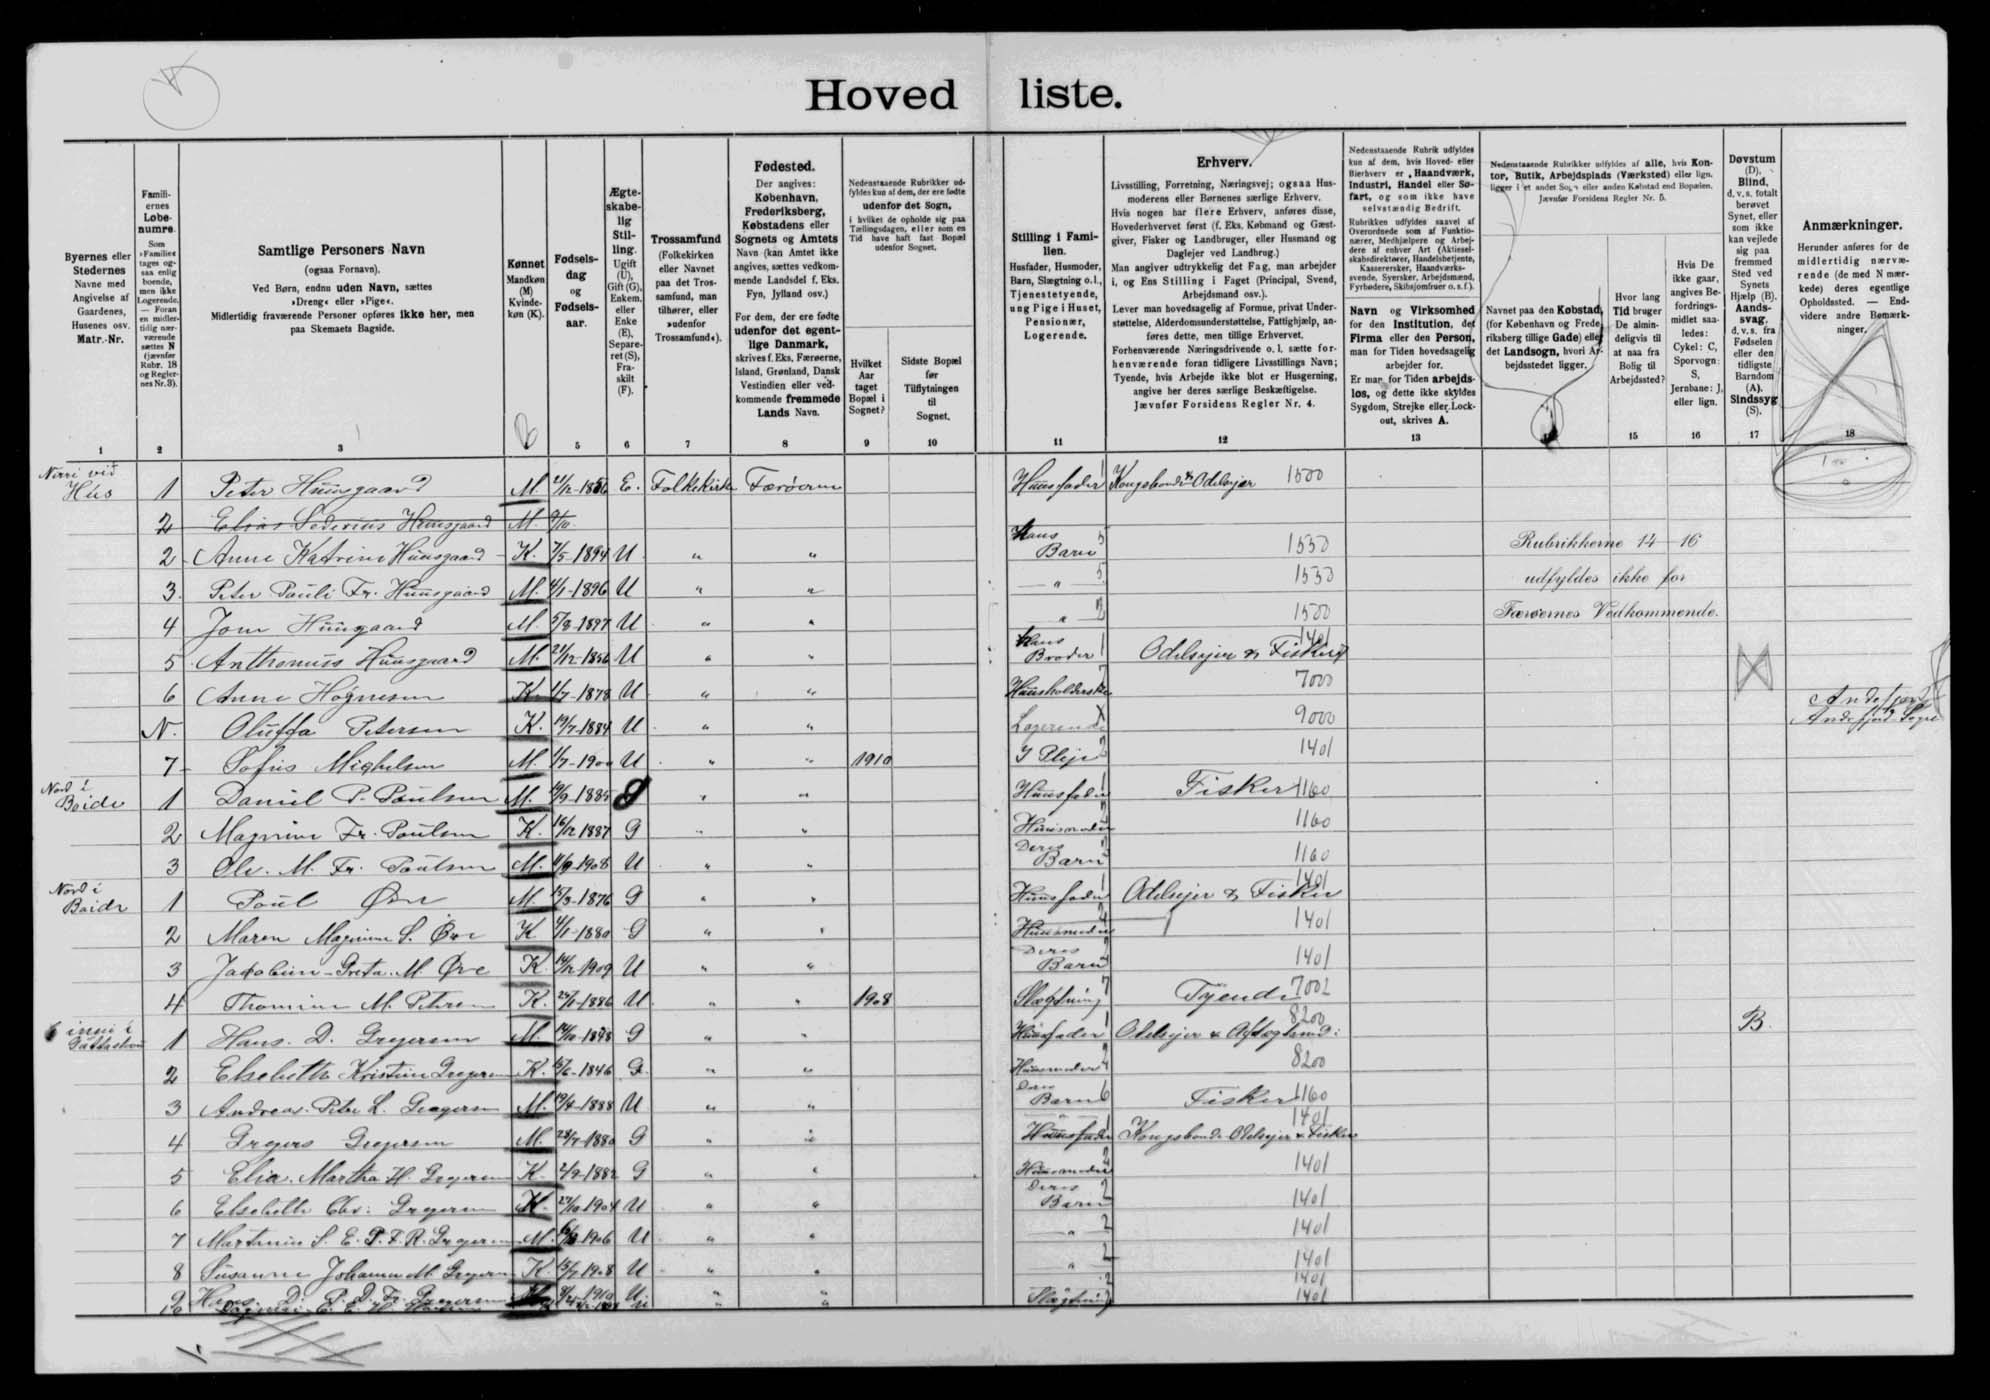 Hoved liste.
Byernes eller Stedernes Navne med Angivelse af Gaardenes, Husenes osv. Matr.-Nr.
Familiernes Løbenumre. Som »Familie« tages ogsaa enlig boende, men ikke Logerende. — Foran en midlertidig nærværende sættes N (jævnfør Rubr. 18 og Regler-nes Nr. 3).
Samtlige Personers Navn
(ogsaa Fornavn).
Ved Børn, endnu uden Navn, sættes
»Dreng« eller »Pige«.
Midlertidig fraværende Personer opføres ikke her, men
paa Skemaets Bagside.
Kønnet Mandkøn (M) Kvindekøn (K).
Fødselsdag og Fødselsaar.
Ægteskabelig Stilling. Ugift (U), Gift (G), Enkem. eller Enke (E), Separeret (S), Fraskilt (F).
Trossamfund (Folkekirken eller Navnet paa det Trossamfund, man tilhører, eller »udenfor Trossamfund«).
Fødested.
Der angives: København, Frederiksberg, Købstadens eller Sognets og Amtets Navn (kan Amtet ikke angives, sættes vedkommende Landsdel f. Eks. Fyn, Jylland osv.)
For dem, der ere fødte udenfor det egentlige Danmark, skrives f. Eks. Færøerne, Island, Grønland, Dansk Vestindien eller vedkommende fremmede Lands Navn.
Nedenstaaende Rubrikker udfyldes kun af dem, der ere fødte udenfor det Sogn, i hvilket de opholde sig paa Tællingsdagen, eller som en Tid have haft fast Bopæl udenfor Sognet.
Hvilket Aar taget Bopæl i Sognet?
Sidste Bopæl før Tilflytningen til Sognet.
Stilling i Familien.
Husfader, Husmoder, Barn, Slægtning o. l., Tjenestetyende, ung Pige i Huset, Pensionær, Logerende.
Erhverv.
Livsstilling, Forretning, Næringsvej; ogsaa Husmoderens eller Børnenes særlige Erhverv.
Hvis nogen har flere Erhverv, anføres disse, Hovederhvervet først (f. Eks. Købmand og Gæstgiver, Fisker og Landbruger, eller Husmand og Daglejer ved Landbrug.)
Man angiver udtrykkelig det Fag, man arbejder i, og Ens Stilling i Faget (Principal, Svend, Arbejdsmand osv.).
Lever man hovedsagelig af Formue, privat Understøttelse, Alderdomsunderstøttelse, Fattighjælp, anføres dette, men tillige Erhvervet.
Forhenværende Næringsdrivende o. l. sætte forhenværende foran tidligere Livsstillings Navn;
Tyende, hvis Arbejde ikke blot er Husgerning, angive her deres særlige Beskæftigelse.
Jævnfør Forsidens Regler Nr. 4.
Nedenstaaende Rubrik udfyldes kun af dem, hvis Hoved- eller Bierhverv er Haandværk, Industri, Handel eller Søfart, og som ikke have selvstændig Bedrift.
Rubrikken udfyldes saavel af Overordnede som af Funktionærer, Medhjælpere og Arbejdere af enhver Art (Aktieselskabsdirektører, Handelsbetjente, Kasserersker, Haandværkssvende, Syersker, Arbejdsmænd, Fyrbødere, Skibsjomfruer o. s. f.).
Navn og Virksomhed for den Institution, det Firma eller den Person, man for Tiden hovedsagelig arbejder for.
Er man for Tiden arbejdsløs, og dette ikke skyldes Sygdom, Strejke eller Lockout, skrives A.
Nedenstaaende Rubrikker udfyldes af alle, hvis Kontor, Butik, Arbejdsplads (Værksted) eller lign. ligger i et andet Sogn eller anden Købstad end Bopælen.
Jævnfør Forsidens Regler Nr. 5.
Navnet paa den Købstad, (for København og Frederiksberg tillige Gade) eller det Landsogn, hvori Arbejdsstedet ligger.
Hvor lang Tid bruger De almindeligvis til at naa fra Bolig til Arbejdssted?
Hvis De ikke gaar, angives Befordringsmidlet saaledes: Cykel: C, Sporvogn: S, Jernbane: J, eller lign.
Døvstum (D), Blind, d. v. s. totalt berøvet Synet, eller som ikke kan vejlede sig paa fremmed Sted ved Synets Hjælp (B). Aandssvag, d. v. s. fra Fødselen eller den tidligste Barndom (A). Sindssyg (S).
Anmærkninger.
Herunder anføres for de midlertidig nærværende (de med N mærkede) deres egentlige Opholdssted. — Endvidere andre Bemærkninger.
1 2 3 5 6 7 8 9 10 11 12 13 15 16 17 18
Nirri við Hús 1 Peter Huusgaard M. 21/12-1856 E. Folkekirke Færöerne Huusfader 1 Kongsbonde & Odelsejer 1500
2 Elias Sederius Huusgaard M.
2 Anne Katrine Huusgaard K. 7/5-1894 U " " Hans Barn 5 1550 Rubrikkerne 14-16
3. Peter Pauli Fr. Huusgaard M. 4/1-1896 U " " " 5 1550 udfyldes ikke for
4 Jona Huusgaard M. 5/8-1897 U " " " 1500 Færøernes Vedkommende.
5 Anthonius Huusgaard M. 21/12-1856 U " " Hans Broder 1 Odelsejer & Fiskeri 1401
6 Anne Høgnesen K. 1/7-1878 U " " Huusholderske 7 7000
N. Oluffa Petersen K. 19/7-1884 U " " Logerende X 9000 Andefjord Sogn
7 Sofus Mighelsen M. 1/7-1900 U " " 1910 I Pleje 2 1401
Nord i Boide 1 Daniel P. Poulsen M. 19/9-1885 G " " Huusfader 1 Fisker 1160
2 Magrine Fr. Poulsen K. 16/12 1887 G " " Huusmoder 2 1160
3 Ole. M. Fr. Poulsen M. 11/9-1908 U " " Deres Barn 2 1160
Nord i Boide 1 Poul Øre M. 15/3-1876 G " " Huusfader 1 Odelsejer & Fisker 1401
2 Maren Magrine S. Øre K 4/1-1880 G " " Huusmoder 2 1401
3 Jacobine-Greta. M. Øre K. 14/12 1909 U " " Deres Barn 2 1401
4 Thomine M. Petersen K. 24/1-1886 U. " " 1908 Slægtning 7 Tyende 7002
inni i 1 Hans. D. Gregersen M. G " " Huusfader 1 Odelsejer & 8200 B.
2 Elsebeth Kristine Gregersen K. 15/6-1846 G. " " Huusmoder 2 8200
3 Andreas. Peter L. Gregersen M. 19/4-1888 U " " Deres Barn 6 Fisker 1160
4 Gregers Gregersen M. 28/7-1880 G " " Huusfader 1 Kongsbonde Odelsejer & Fisker 1401
5 Elia. Martha H. Gregersen K. 2/9-1882 G " " Huusmoder 2 1401
6 Elsebeth Chr: Gregersen K. 27/10-1904 U " " Deres Barn 2 1401
7 Martinus S. E. P. F. R. Gregersen M. 1906 U " " " 2 1401
8 Susanne Johanne M. Gregersen K. 15/7-1908 U " " " 2 1401
9 Hans. D. P. D. Fr. Gregersen M. 1910 U " " " 2 1401
10 U " " Slægtning 1401